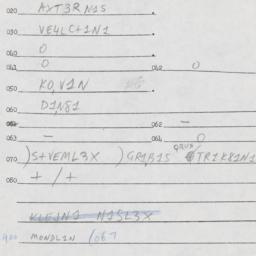 020 AXT3R N1S
030 VE4LC+1N1
040 0
041 0 042 0
050 K0,V1N
060 D1N81
061 — 062 —
063 — 061 0
070 )S+VEML3X )GR1B1S /TR1K81N1
080 + / +
KLEJN1 N15L3X
400 MONDL1N /067